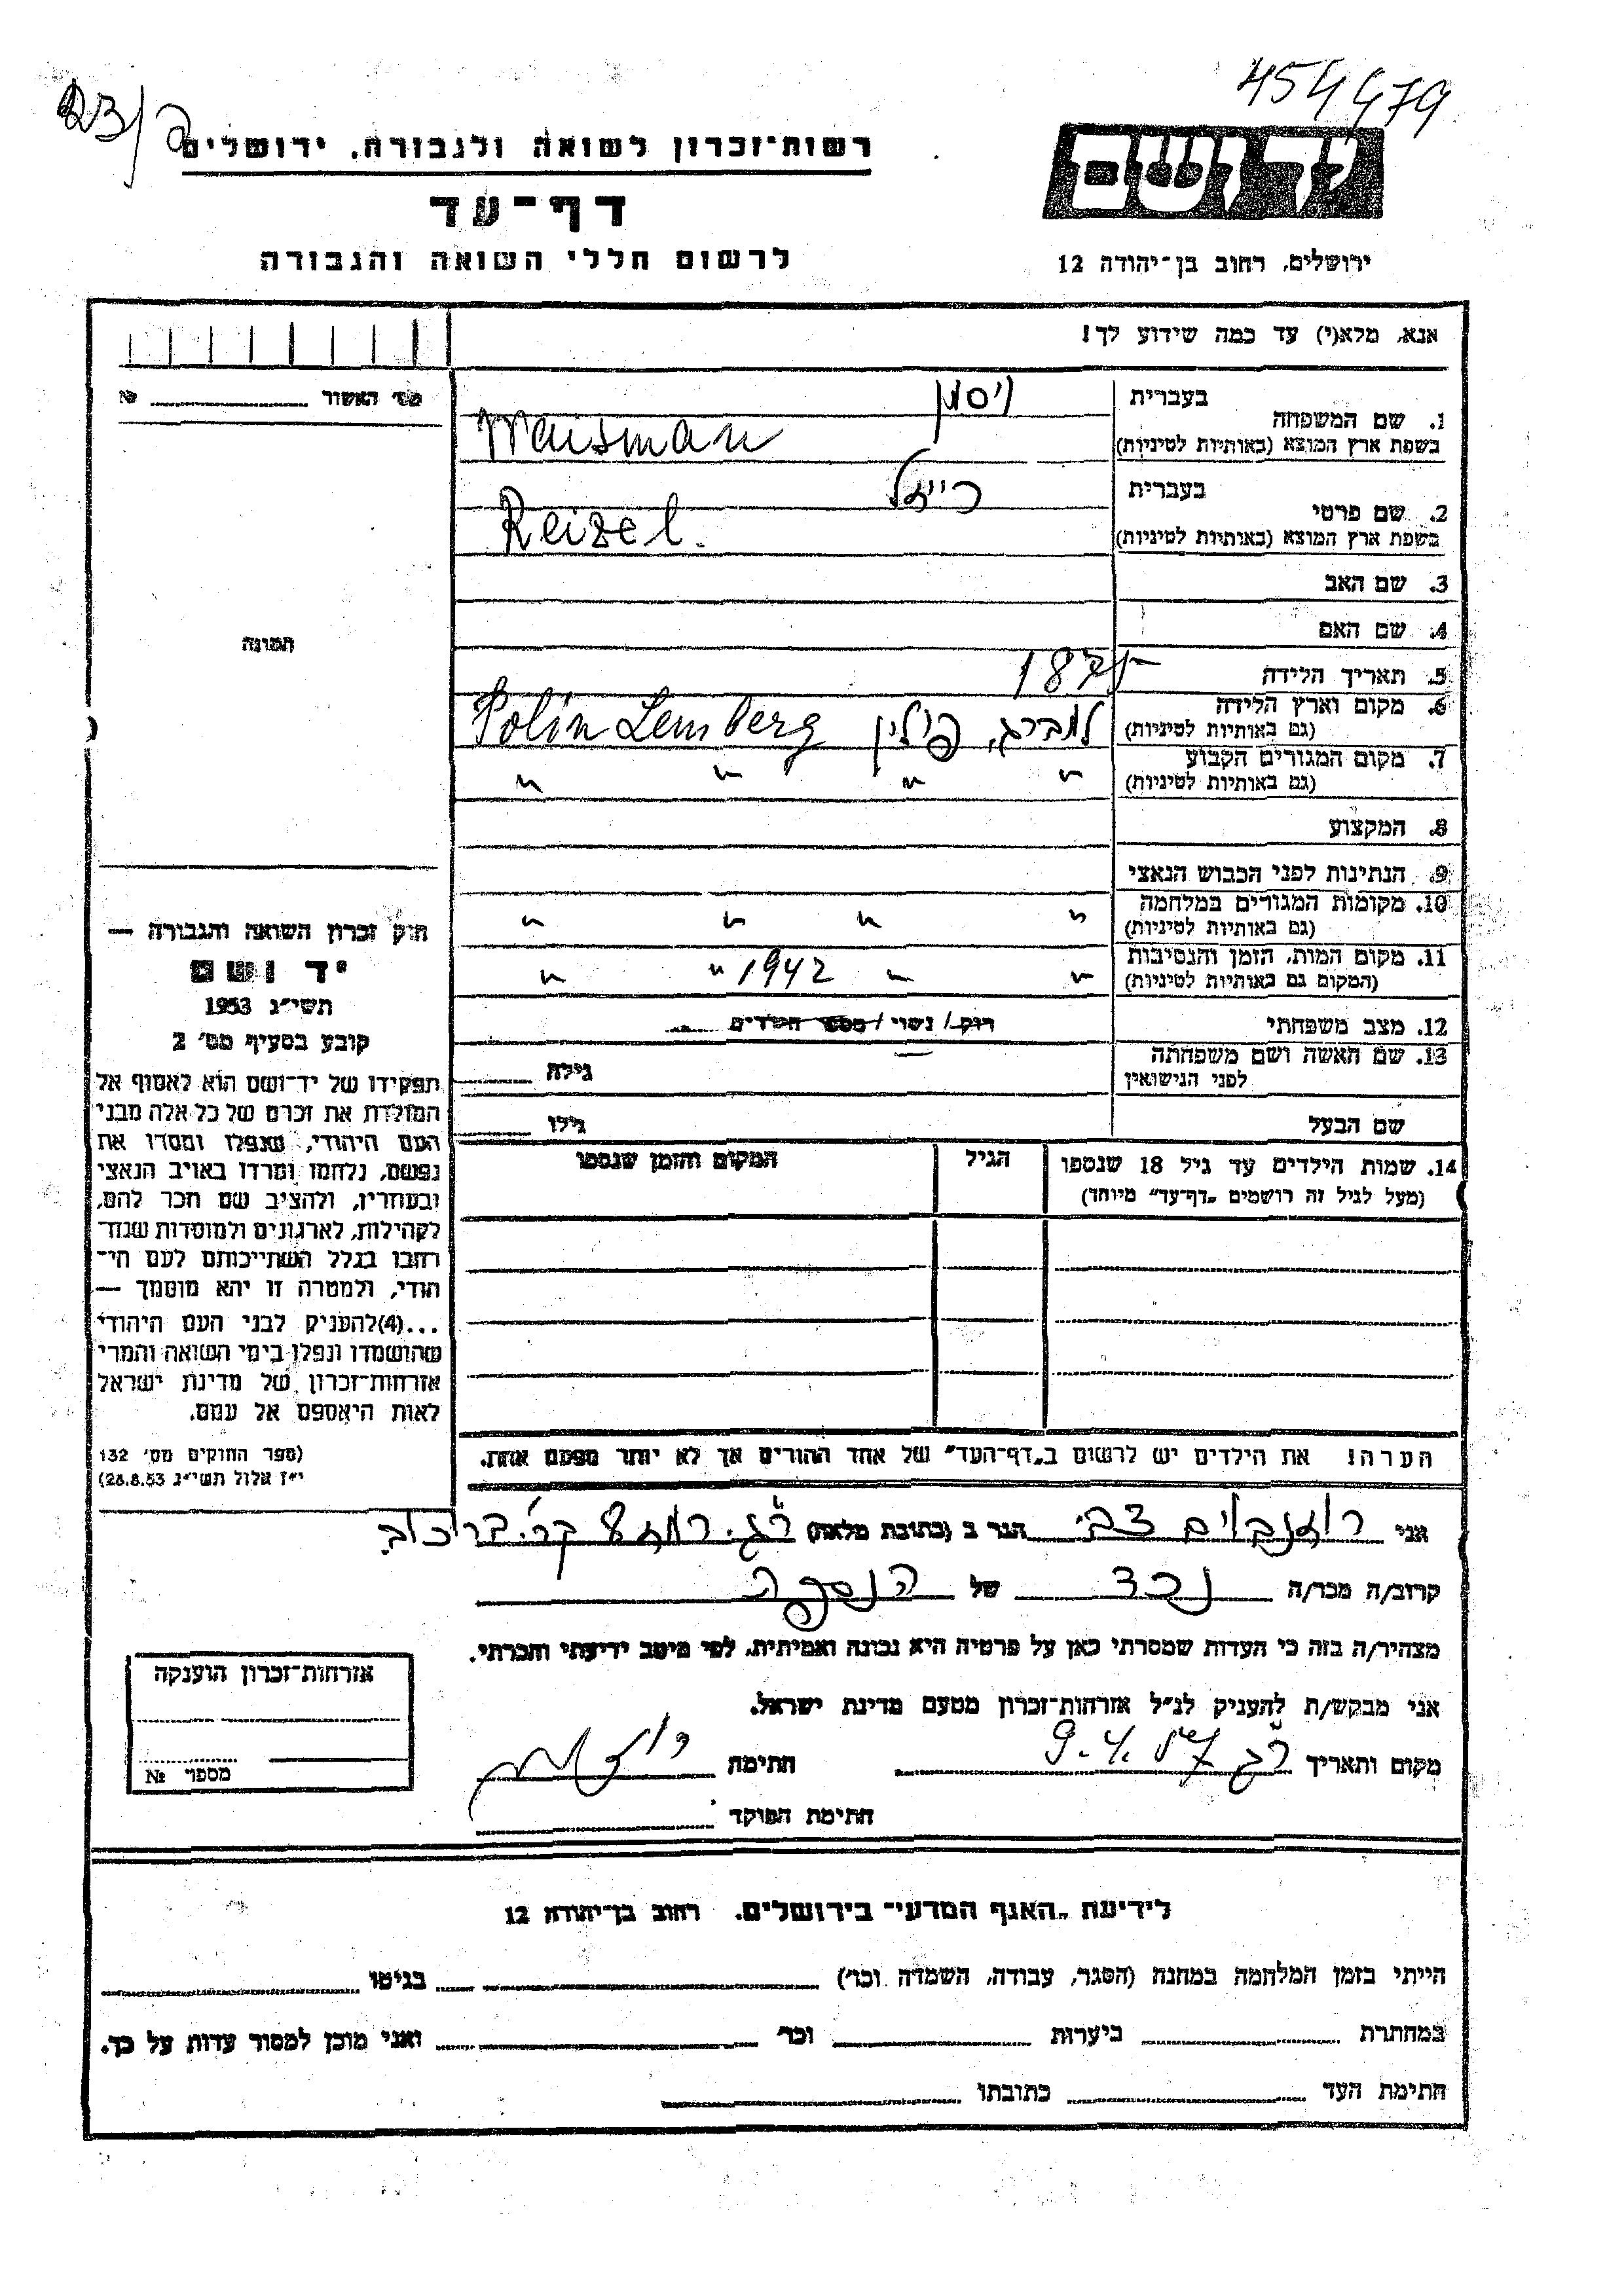 454479
23/
רשות־זכרון לשואה ולגבורה, ירושלים
יד ושם
דף־עד
לרשום חללי השואה והגבורה
ירושלים, רחוב בן־יהודה 12
אנא, מלא(י) עד כמה שידוע לך!
מס' האשור № 
בעברית ויסמן
1. שם המשפחה
בשפת ארץ המוצא (באותיות לטיניות) Waisman
בעברית רייזל
2. שם פרטי
בשפת ארץ המוצא (באותיות לטיניות) Reizel.
3. שם האב
4. שם האם
תמונה
5. תאריך הלידה 1875
6. מקום וארץ הלידה
(גם באותיות לטיניות) למברג, פולין Polin Lemberg
7. מקום המגורים הקבוע
(גם באותיות לטיניות) " " " "
8. המקצוע
9. הנתינות לפני הכבוש הנאצי
10. מקומות המגורים במלחמה
(גם באותיות לטיניות) " " " "
11. מקום המות, הזמן והנסיבות
(המקום גם באותיות לטיניות) " " 1942 " "
12. מצב משפחתי רווק/ נשוי / מספר הילדים
13. שם האשה ושם משפחתה
לפני הנישואין גילה
שם הבעל גילו
14. שמות הילדים עד גיל 18 שנספו
(מעל לגיל זה רושמים „דף־עד" מיוחד)
הגיל
המקום והזמן שנספו
חוק זכרון השואה והגבורה —
יד ושם
תשי"ג 1953
קובע בסעיף מס' 2
תפקידו של יד־ושם הוא לאסוף אל
המולדת את זכרם של כל אלה מבני
העם היהודי, שנפלו ומסרו את
נפשם, נלחמו ומרדו באויב הנאצי
ובעוזריו, ולהציב שם וזכר להם,
לקהילות, לארגונים ולמוסדות שנח־
רבו בגלל השתייכותם לעם הי־
הודי, ולמטרה זו יהא מוסמך —
...(4)להעניק לבני העם היהודי
שהושמדו ונפלו בימי השואה והמרי
אזרחות־זכרון של מדינת ישראל
לאות היאספם אל עמם.
(ספר החוקים מס' 132
י"ז אלול תשי"ג 28.8.53)
הערה! את הילדים יש לרשום ב„דף־העד" של אחד ההורים אך לא יותר מפעם אחת.
אני רוזנבוים צבי הגר ב (כתובת מלאה) ר"ג.
קרוב/ה מכר/ה נכד של הנספה
מצהיר/ה בזה כי העדות שמסרתי כאן על פרטיה היא נכונה ואמיתית, לפי מיטב ידיעתי והכרתי.
אני מבקש/ת להעניק לנ"ל אזרחות־זכרון מטעם מדינת ישראל.
מקום ותאריך ר"ג 9.4.57 חתימה
חתימת הפוקד
אזרחות־זכרון הוענקה
מספר №
לידיעת „האגף המדעי" בירושלים, רחוב בן־יהודה 12
הייתי בזמן המלחמה במחנה (הסגר, עבודה, השמדה וכו') בגיטו
במחתרת ביערות וכו' ואני מוכן למסור עדות על כך.
חתימת העד כתובתו